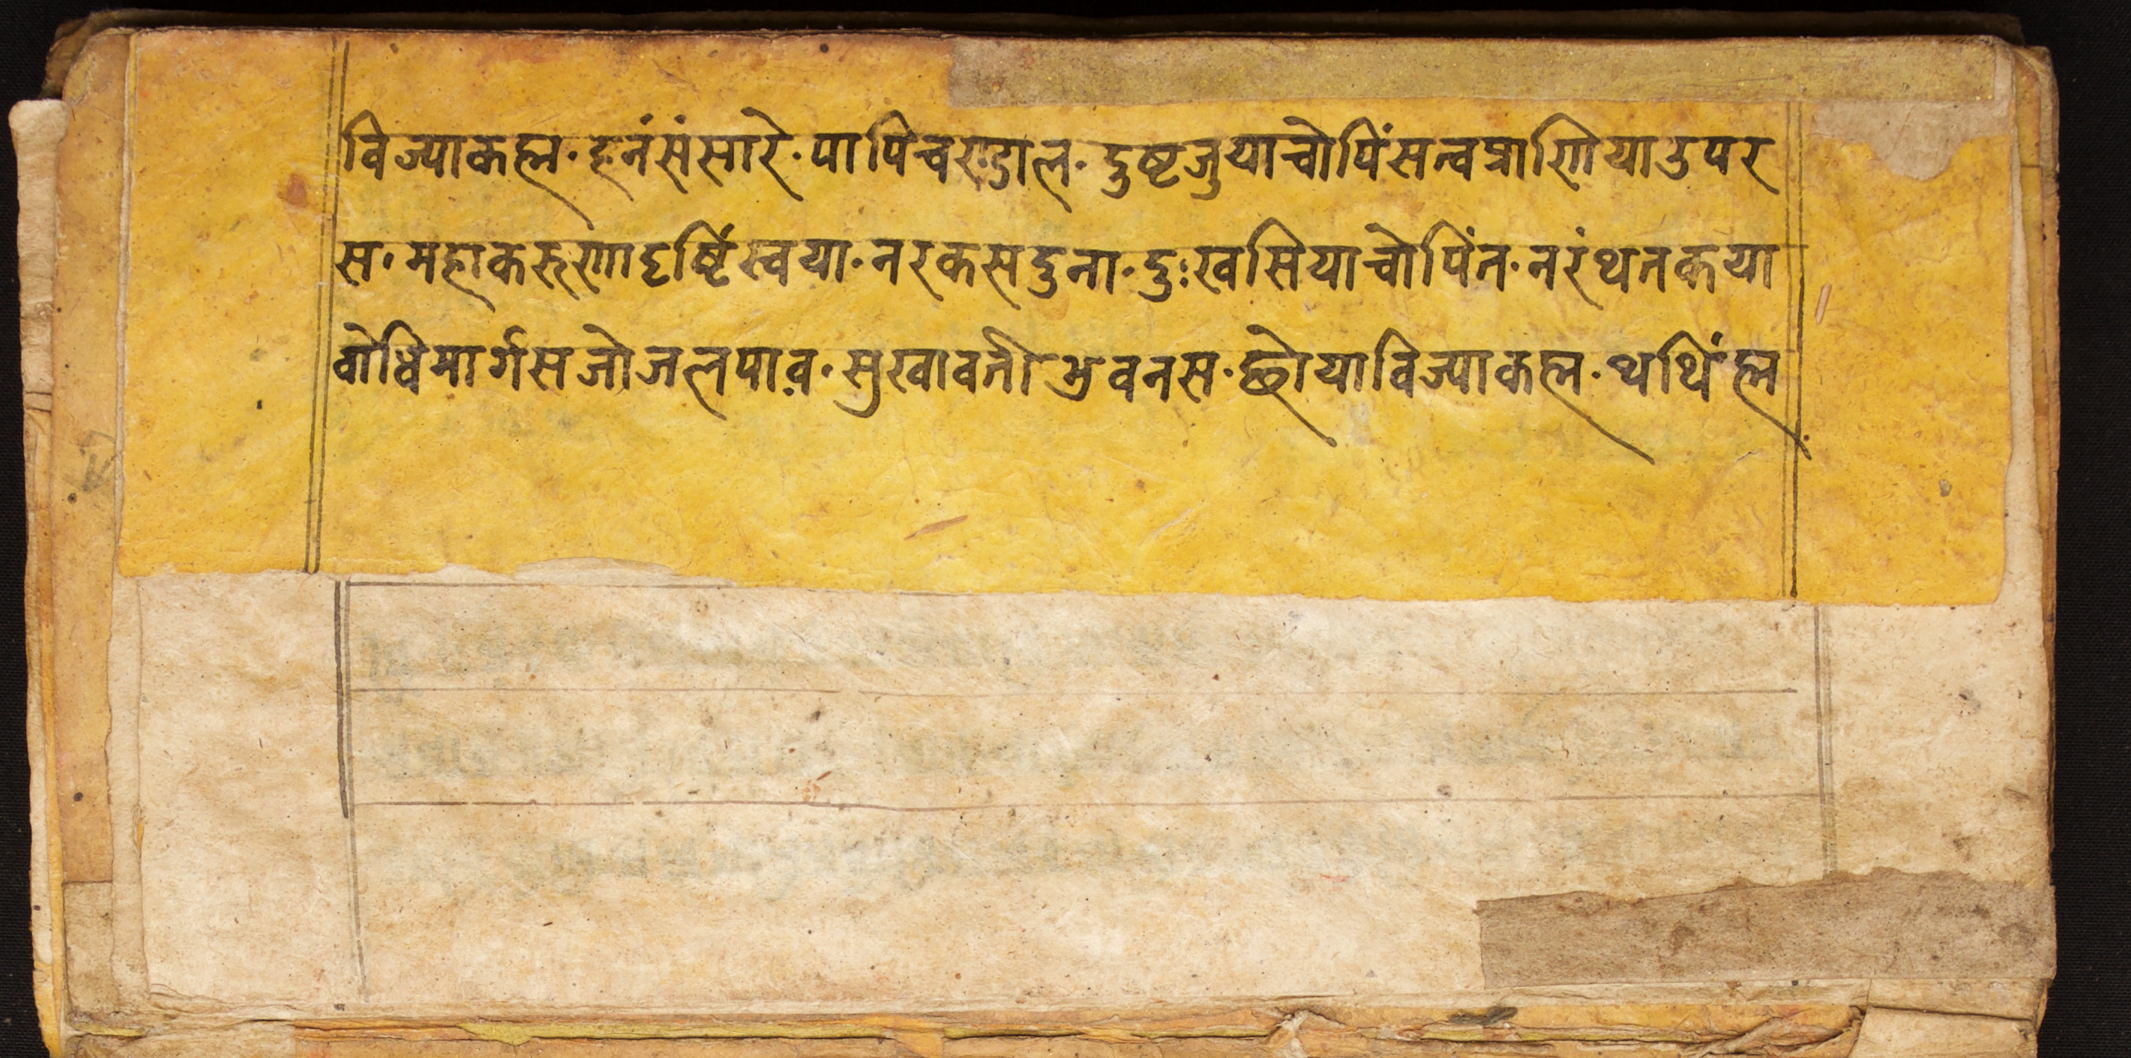 विज्याकह्म॰हनंसंसारे॰पापिचरुडाल॰दुष्टजुयाचोपिंसत्वप्राणियाउपर
स॰महाकरुणादृष्टिंस्वया॰नरकसदुना॰दुःखसियाचोपिंत॰नरंथतकया
वोधिमार्गसजोजलपाव॰सुखावतीभुवनस॰छोयाविज्याकह्म॰थथिंह्म